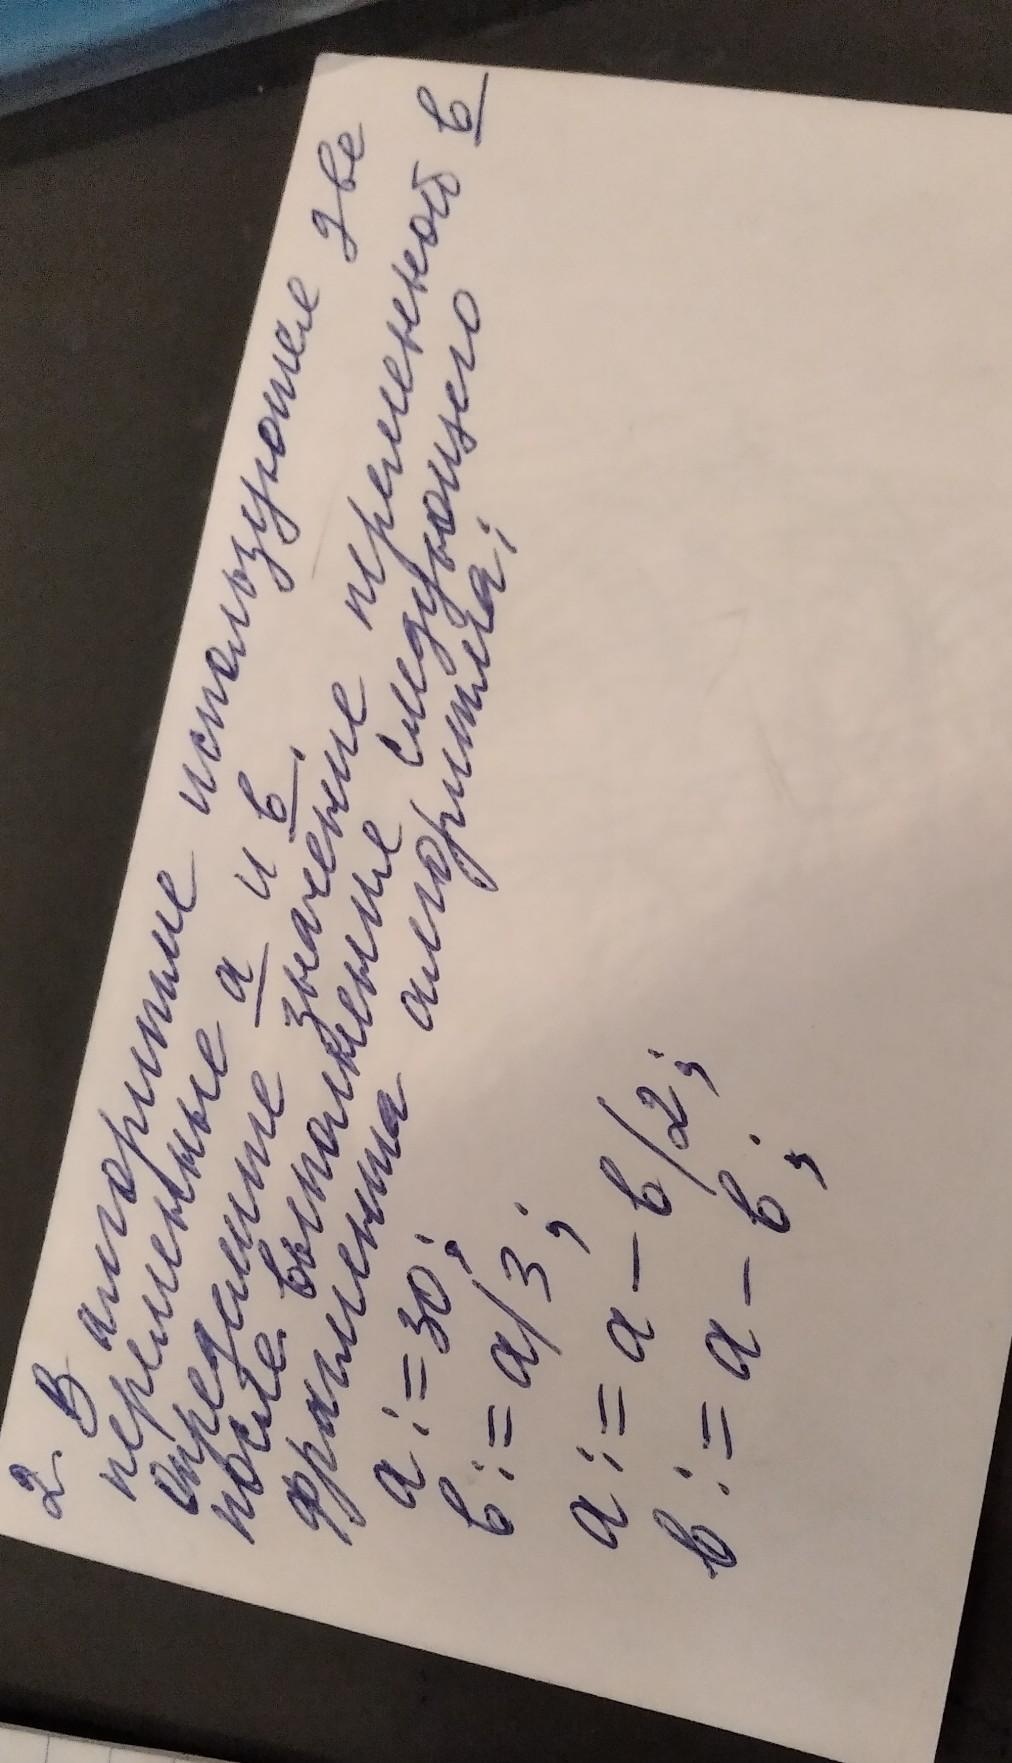 2. В алгоритме используются две
переменные а и в.
определите значение переменной в
после выполнения следующего
фрагмента алгоритма:
а := 30;
в := а/3;
а := а - в/2;
в := а - в;